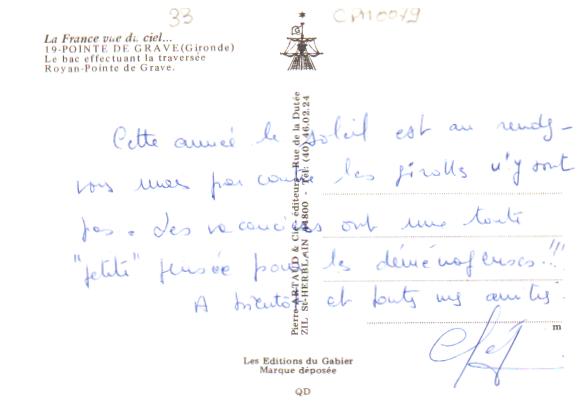 33
CPM0079
La France vue du ciel...
19-POINTE DE GRAVE(Gironde)
Le bac effectuant la traversée
Royan-Pointe de Grave.
Cette année le soleil est au rendez-
vous mais par contre les girolls n'y sont
pas. Les vacanciers ont une toute
"petite" pensée pour les déménageuses!!!
A bientôt et toute mes amitiés
Pierre ARTAUD & Cie - éditeurs - Rue de la Dutée
ZIL St-HERBLAIN 44800 - Tél: (40) 46.02.24
m
Les Editions du Gabier
Marque déposée
QD